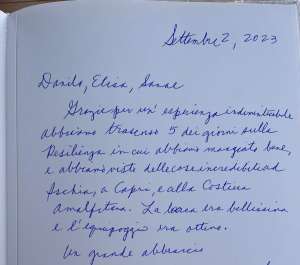 Settembre 2, 2023
Danilo, Elisa, Sanae
Grazie per un' esperienza indimenticabile
abbiamo trascorso 5 dei giorni sulla
Resilienza in cui abbiamo mangiato bene,
e abbiamo visto delle cose incredibili ad
Ischia, a Capri, e alla Costiera
Amalfitana. La barca era bellissima
e l'equipaggio era ottimo.
Un grande abbraccio